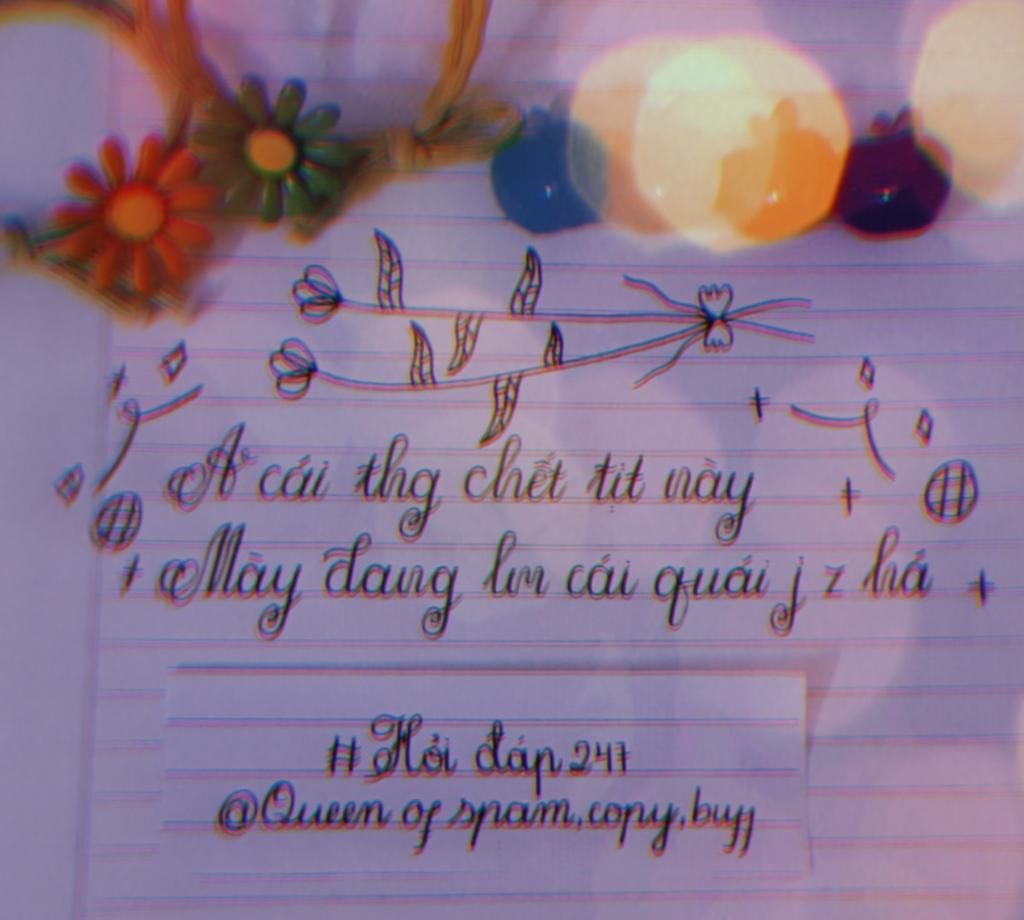 A cái thg chết tịt này
Mày đang lm cái quái j z há
#Hỏi đáp 247
@Queen of spam, copy, buff